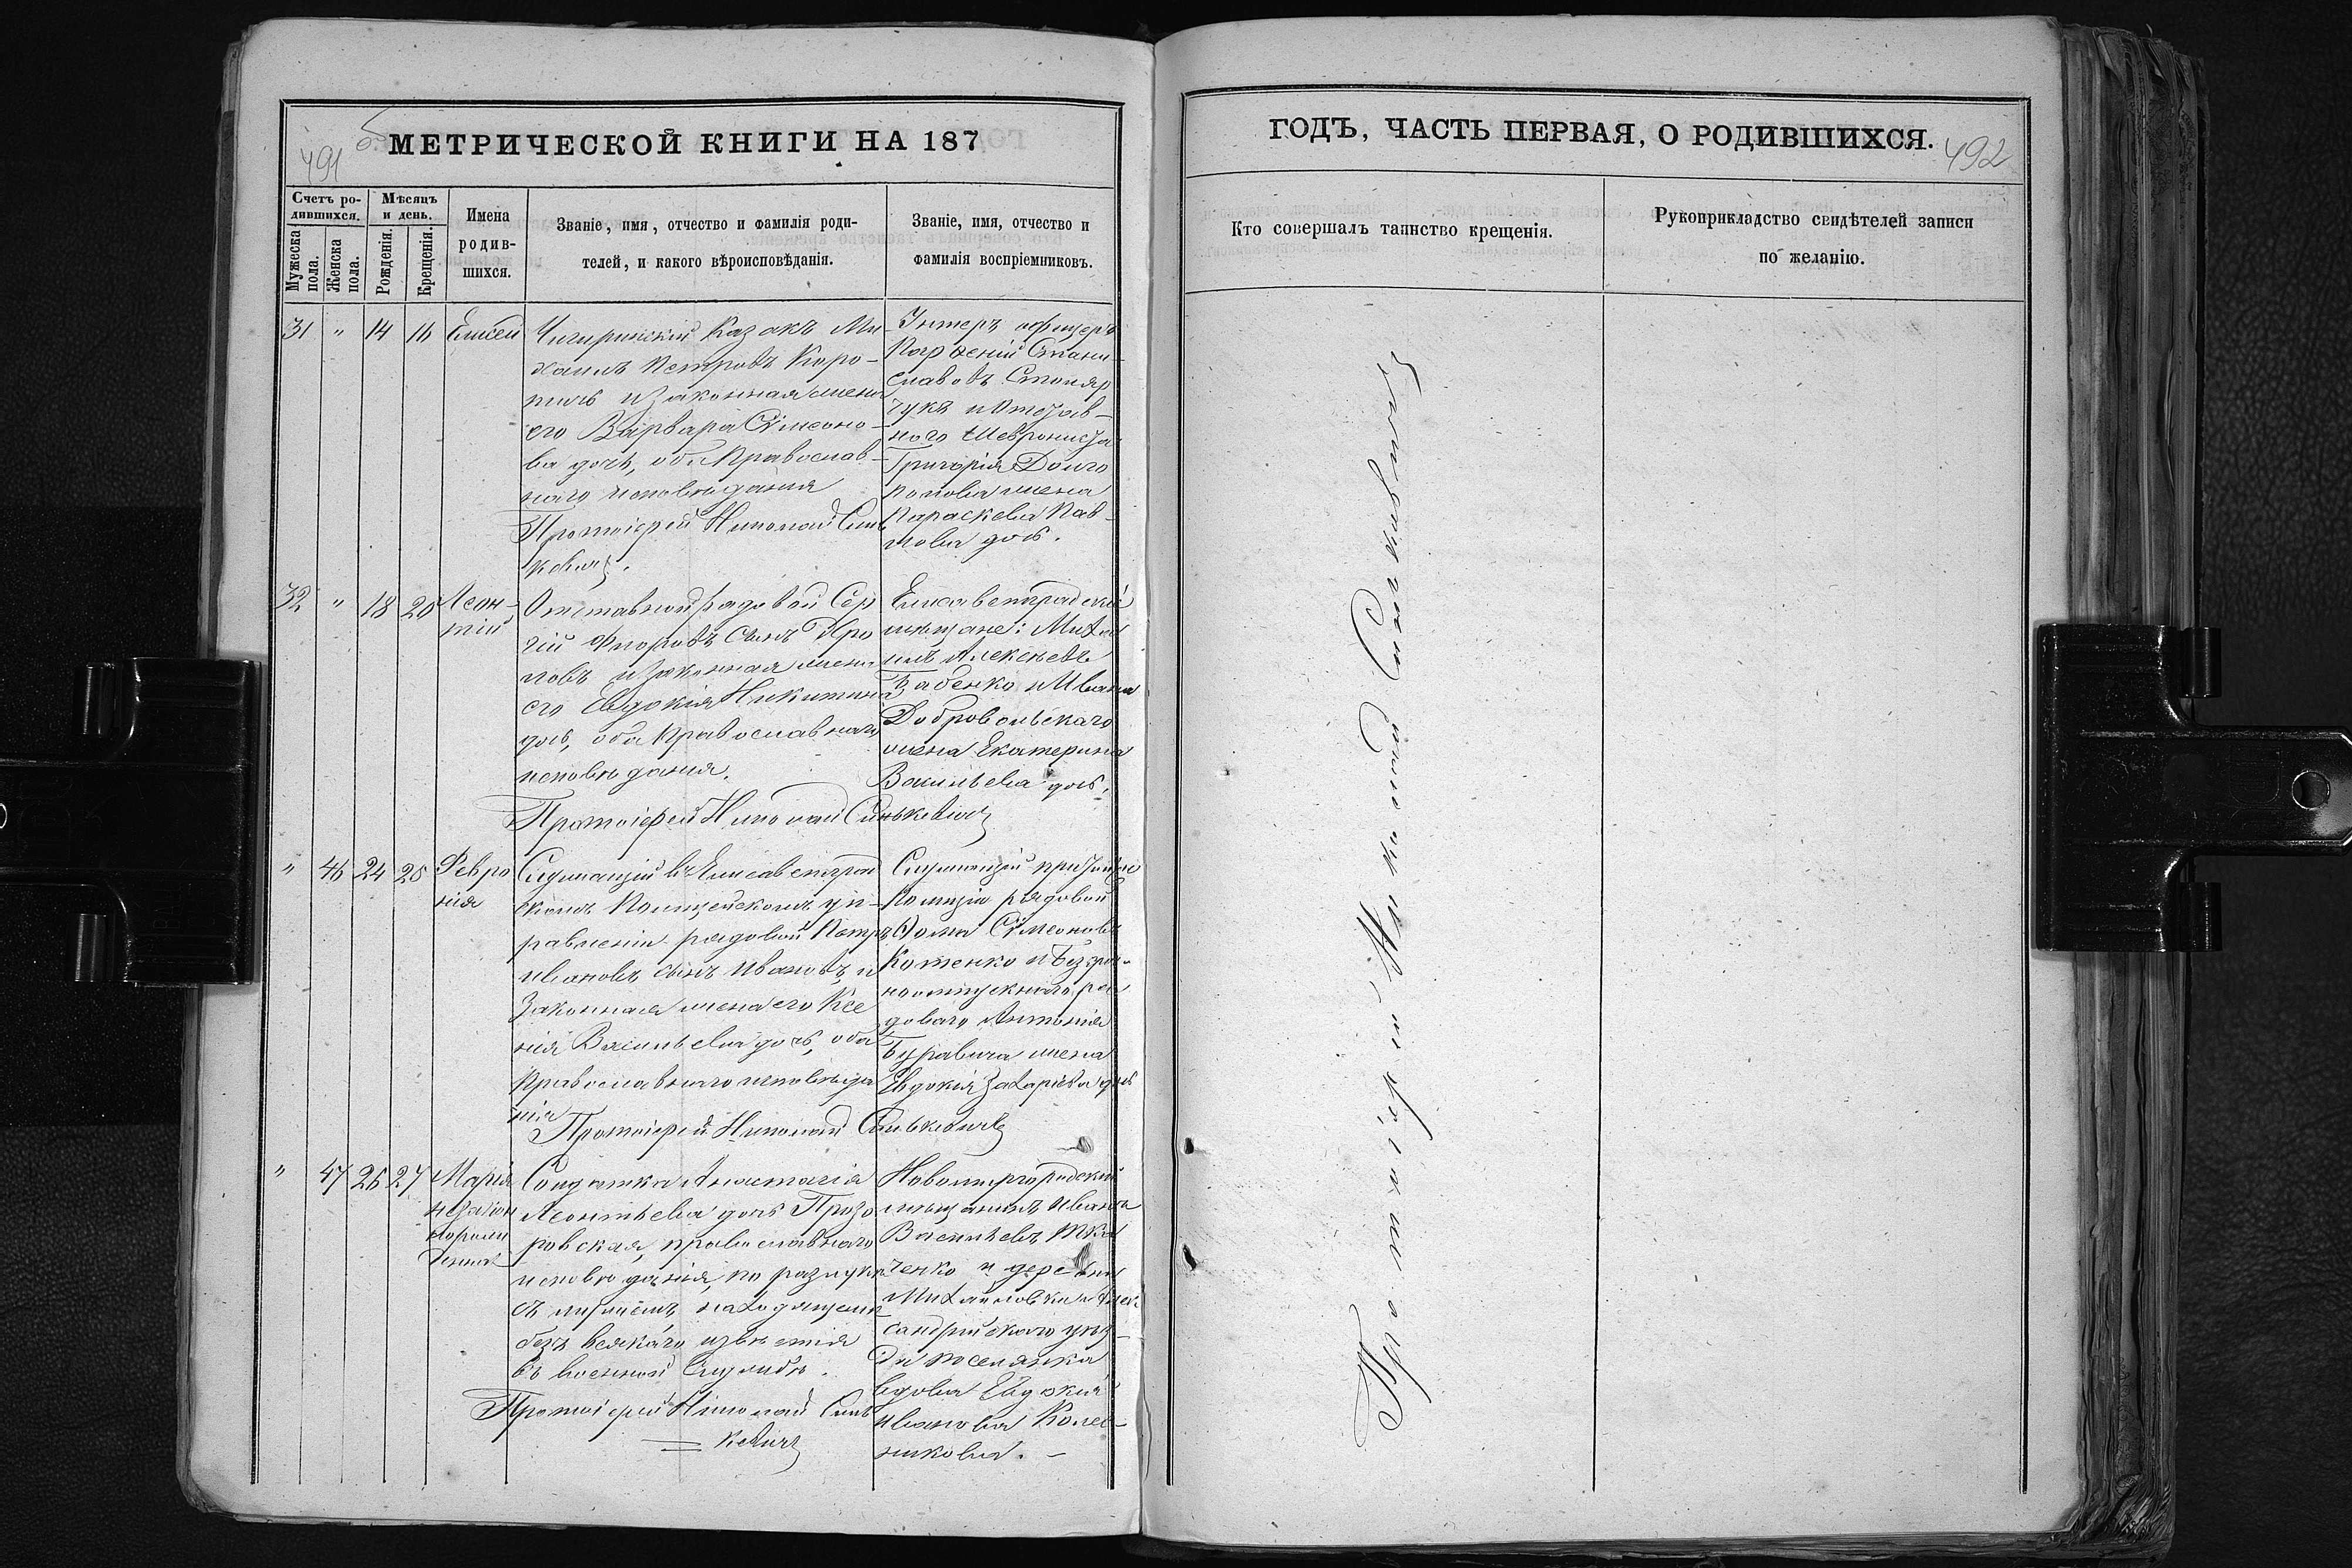 МЕТРИЧЕСКОЙ КНИГИ НА 187
491
Счетъ родившихся.
Мужеска пола.
Женска пола.
Мѣсяцъ и день.
Рожденія.
Крещенія.
Имена родившихся.
Званіе, имя, отчество и фамилія родителей, и какого вѣроисповѣданія.
Званіе, имя, отчество и фамилія воспріемниковъ.
31 " 14 16 Елисей
Чигиринскій Казакъ Ми-
хаилъ Петровъ Коро-
и законная жена
его Варвара Сѵмеоно-
ва дочь, оба Православ-
наго исповѣданія
Протоіерей Николай Синь
кевичъ.
Унтеръ офицеръ
Парѳеній Стани-
славовъ Столяр
чукъ и Отстав-
ного
Григорія Долго
полова жена
Параскева Пав-
лова дочь.
32 " 18 20 Леон-
тій
Отставной рядовой Сер
гій Флоровъ сынъ Фро
ловъ и законная жена
его Евдокія Никитина
дочь, оба Православнаго
исповѣданія.
Протоіерей Николай Синькевичъ
Елисаветградскіе
мѣщане: Михаи
илъ Алексѣевъ
Бабенко и Ивана
Добровольскаго
жена Екатерина
Васильева дочь.
" 46 24 25 Февро
нія
Служащій въ Елисаветград
скомъ Полицейскомъ уп-
равленіи рядовой Петръ
Ивановъ сынъ Ивановъ, и
Законная жена его Ксе
нія Васильева дочь, оба
Православнаго исповѣда
нія
Протоіерей Николай Синькевичъ
Служащій при
Полиціи рядовой
Ѳома Сѵмеоновъ
Котенко и Безсроч-
ноотпускнаго ря
доваго Антонія
жена
Евдокія Захаріева дочь
" 47 26 27 Марія
незакон
норож
денная
Солдатка Анастасія
Леонтьева дочь Прозо
ровская, православнаго
исповѣданія, по разлукѣ
съ мужемъ, находящемся
безъ всякаго извѣстія
въ военной Службѣ.
Протоіерей Николай Синь
= кевичъ
Новомиргородскій
мѣщанинъ Иванъ
Васильевъ Тка
ченко и деревни
Михайловки Алек
сандрійскаго уѣз-
да поселянка
вдова Евдокія
Иванова Колес-
никова. –
ГОДЪ, ЧАСТЬ ПЕРВАЯ, О РОДИВШИХСЯ.
492
Кто совершалъ таинство крещенія.
Рукоприкладство свидѣтелей записи
по желанію.
Протоіерей Николай Синькевичъ